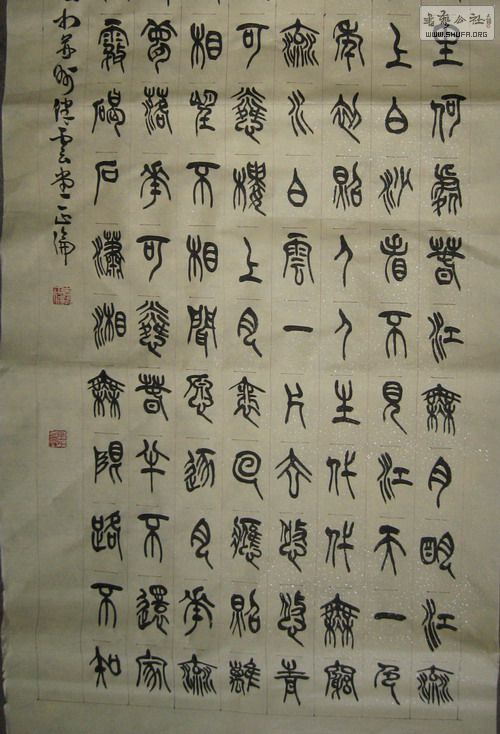 書藝公社
WWW.SHUFA.ORG
何處春江無月明江流
上白沙看不見江天一色
年初照人人生代代無窮
流水白雲一片去悠悠青
可憐樓上月裴回應照離
相望不相聞願逐月華流
夢落花可憐春半不還家
霧碣石瀟湘無限路不知
蘇州雲堂